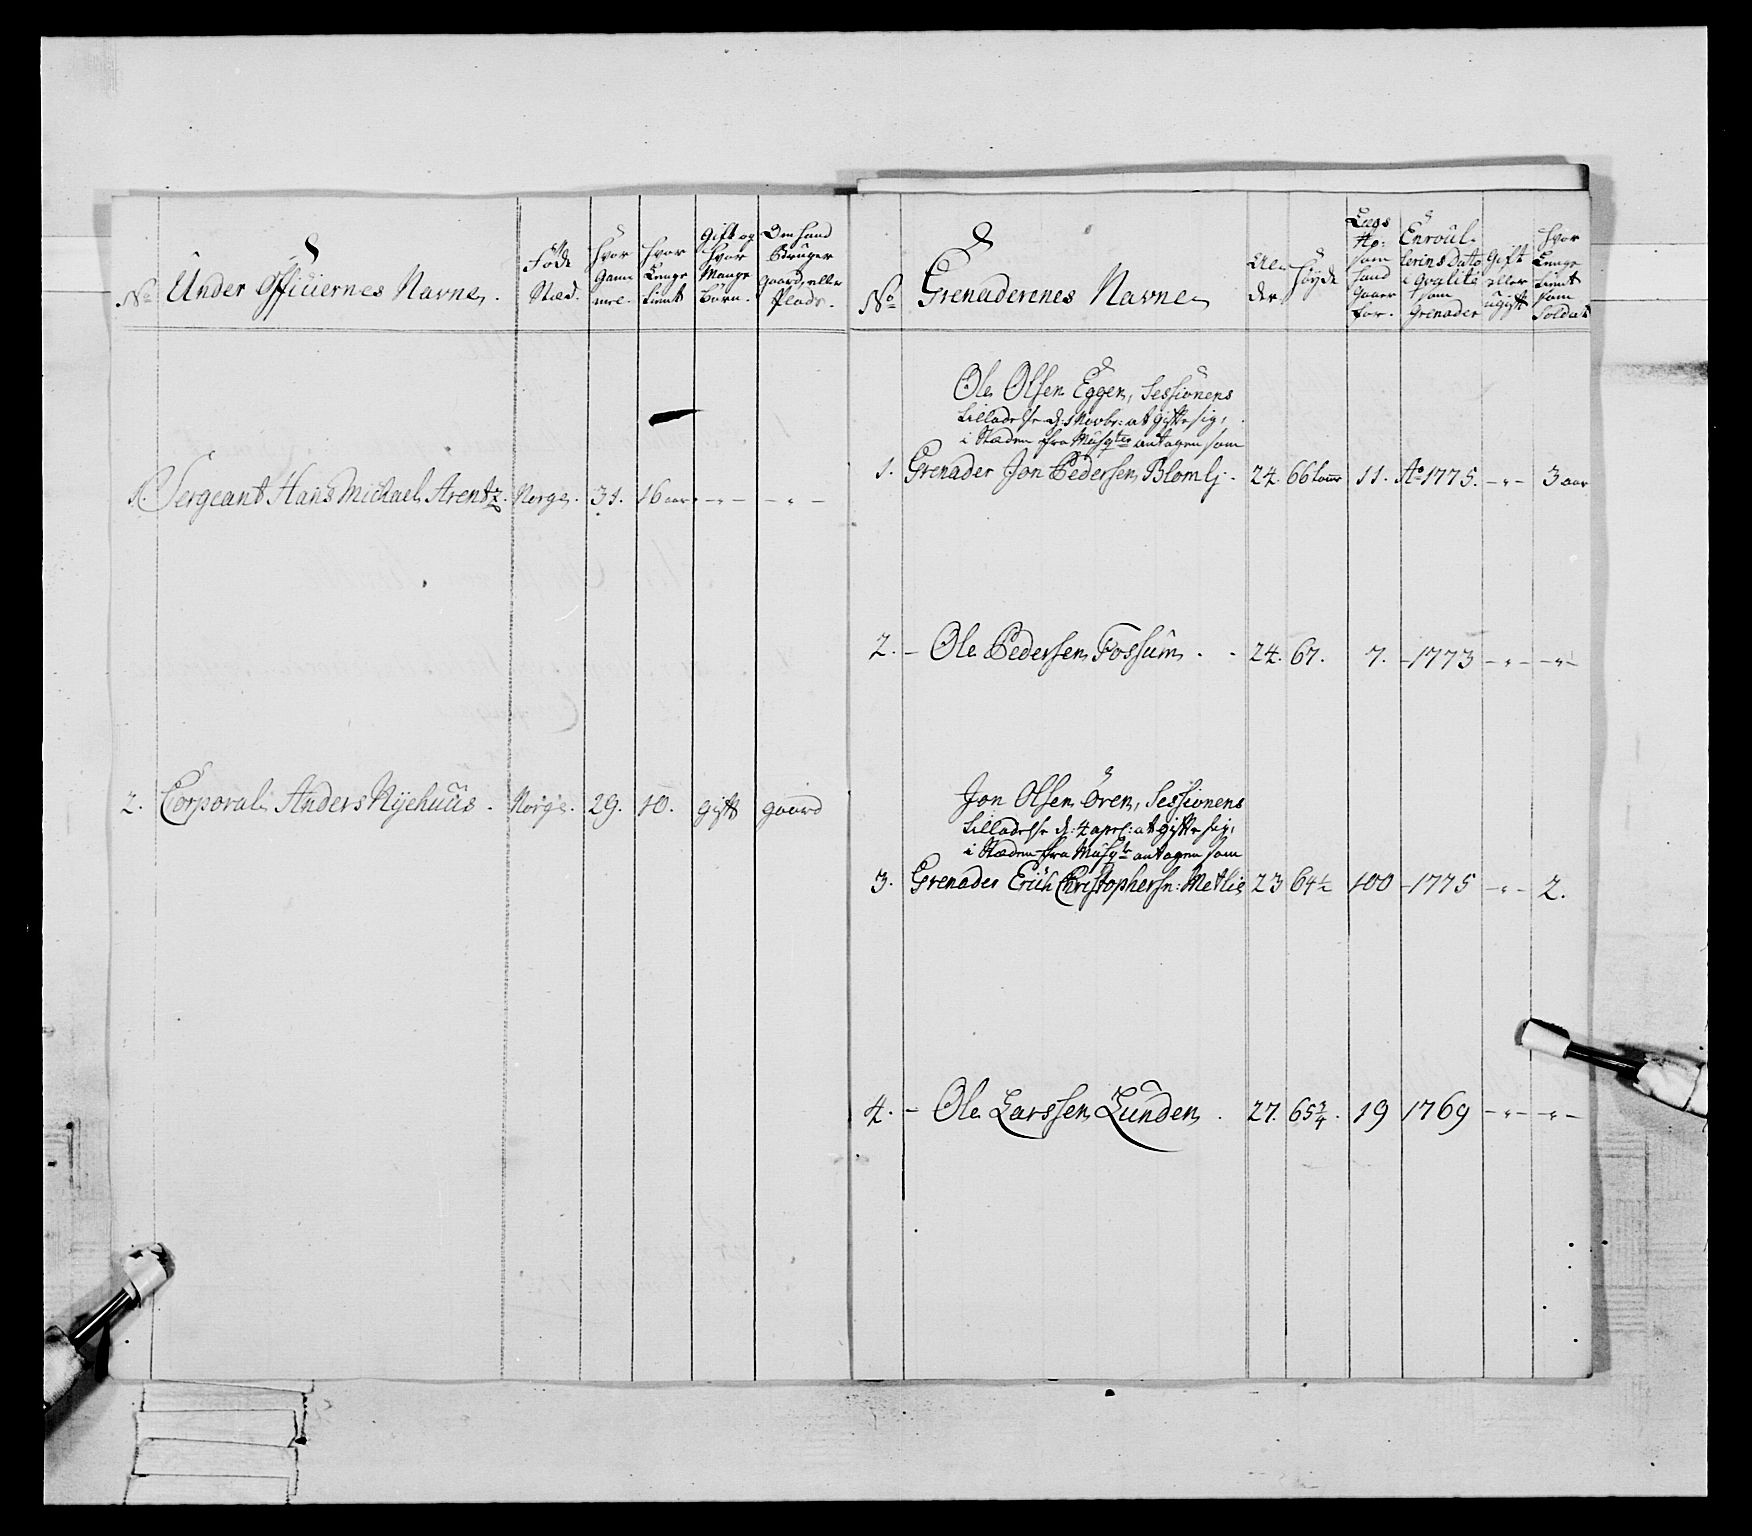 No
Under Officiernes Navne.
Føde Stæd.
Hvor Gammel.
Hvor Lenge tient
Gift og Hvor Mange Børn.
Om hand Bruger gaard, eller Plads.
1. Sergeant Hans Michael Arentz. Norge. 31. 16 aar. -"- -"-
2. Corporal Anders Nyehuus. Norge. 29. 10. gift gaard
No
Grenaderenes Navne
Alder.
Høyde
Lægs No: som hand gaaer for.
Enroullerins Datto i Qvalité som Grenader
Gift eller ugift
Hvor Lenge tient som Soldat
Ole Olsen Eggen, Sessionens
tilladelse d: Novbr: at gifte sig,
i Stæden fra Musqter antagen som
1. Grenader Jon Pedersen Blomlj. 24. 66 tomr 11. Ao 1775. -"- 3 aar
2. - Ole Pedersen Fossum. - 24. 67. 7. -1773 -"- -"-
Jon Olsen Øren, Sessionens
tilladelse d: 4 aprl: at gifte sig,
i Stæden fra Musqtr antagen som
3. Grenader Erich Christophersn: Metlie 23 64½ 100 -1775 -"- 2.
4. - Ole Larssen Lunden. 27. 65¾. 19 1769 -"- -"-